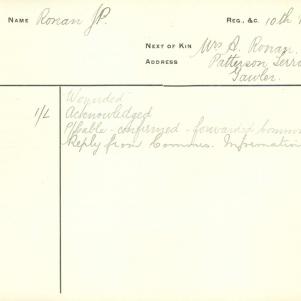 NAME Ronan J.P.
REG. &C. 10th
NEXT OF KIN Mrs A. Ronan.
ADDRESS Patterson Terr
Gawler.
Wounded
1/L Acknowledged
confirmed - forwarded
Reply from Commes. Information